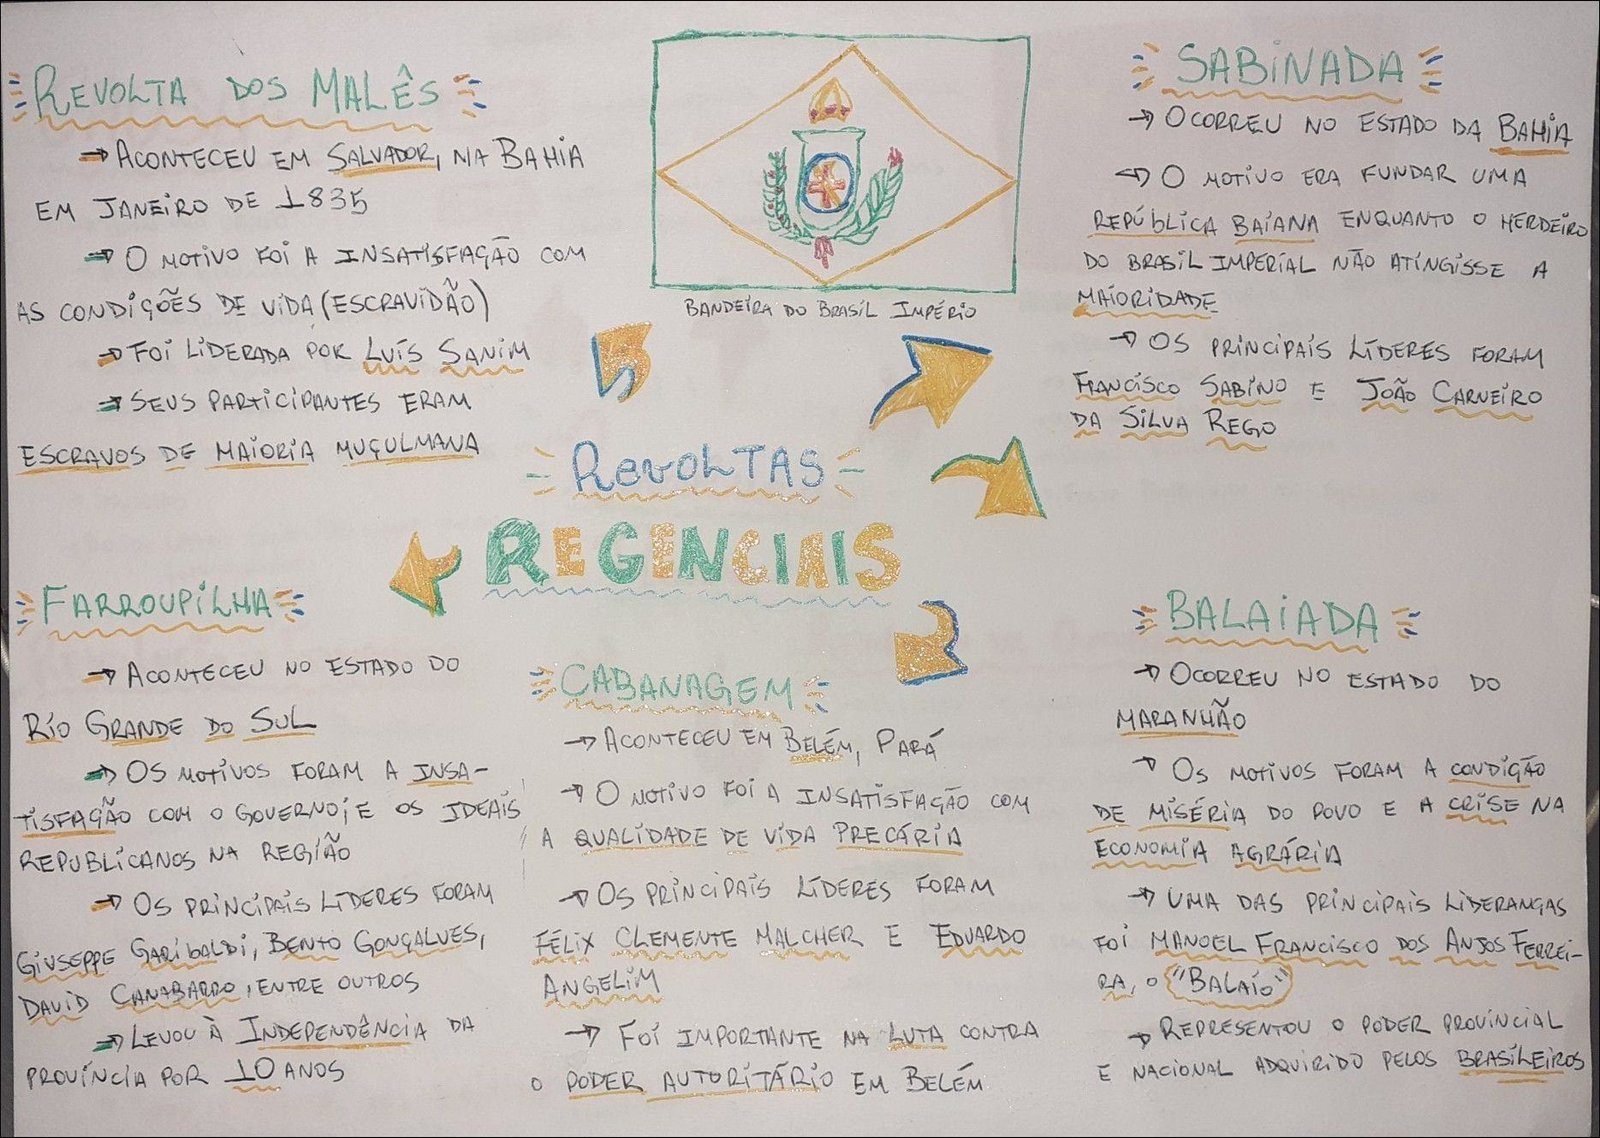 REVOLTA DOS MALÊS
→ ACONTECEU EM SALVADOR, NA BAHIA
EM JANEIRO DE 1835
→ O MOTIVO FOI A INSATISFAÇÃO COM
AS CONDIÇÕES DE VIDA (ESCRAVIDÃO)
→ FOI LIDERADA POR LUÍS SANIM
→ SEUS PARTICIPANTES ERAM
ESCRAVOS DE MAIORIA MUÇULMANA
BANDEIRA DO BRASIL IMPÉRIO
SABINADA
→ OCORREU NO ESTADO DA BAHIA
→ O MOTIVO ERA FUNDAR UMA
REPÚBLICA BAIANA ENQUANTO O HERDEIRO
DO BRASIL IMPERIAL NÃO ATINGISSE A
MAIORIDADE
→ OS PRINCIPAIS LÍDERES FORAM
FRANCISCO SABINO E JOÃO CARNEIRO
DA SILVA REGO
REVOLTAS
REGENCIAIS
FARROUPILHA
→ ACONTECEU NO ESTADO DO
RIO GRANDE DO SUL
→ OS MOTIVOS FORAM A INSA-
TISFAÇÃO COM O GOVERNO; E OS IDEAIS
REPUBLICANOS NA REGIÃO
→ OS PRINCIPAIS LÍDERES FORAM
GIUSEPPE GARIBALDI, BENTO GONÇALVES,
DAVID CANABARRO, ENTRE OUTROS
→ LEVOU À INDEPENDÊNCIA DA
PROVÍNCIA POR 10 ANOS
CABANAGEM
→ ACONTECEU EM BELÉM, PARÁ
→ O MOTIVO FOI A INSATISFAÇÃO COM
A QUALIDADE DE VIDA PRECÁRIA
→ OS PRINCIPAIS LÍDERES FORAM
FÉLIX CLEMENTE MALCHER E EDUARDO
ANGELIM
→ FOI IMPORTANTE NA LUTA CONTRA
O PODER AUTORITÁRIO EM BELÉM
BALAIADA
→ OCORREU NO ESTADO DO
MARANHÃO
→ OS MOTIVOS FORAM A CONDIÇÃO
DE MISÉRIA DO POVO E A CRISE NA
ECONOMIA AGRÁRIA
→ UMA DAS PRINCIPAIS LIDERANÇAS
FOI MANOEL FRANCISCO DOS ANJOS FERREI-
RA, O "BALAIO"
→ REPRESENTOU O PODER PROVINCIAL
E NACIONAL ADQUIRIDO PELOS BRASILEIROS